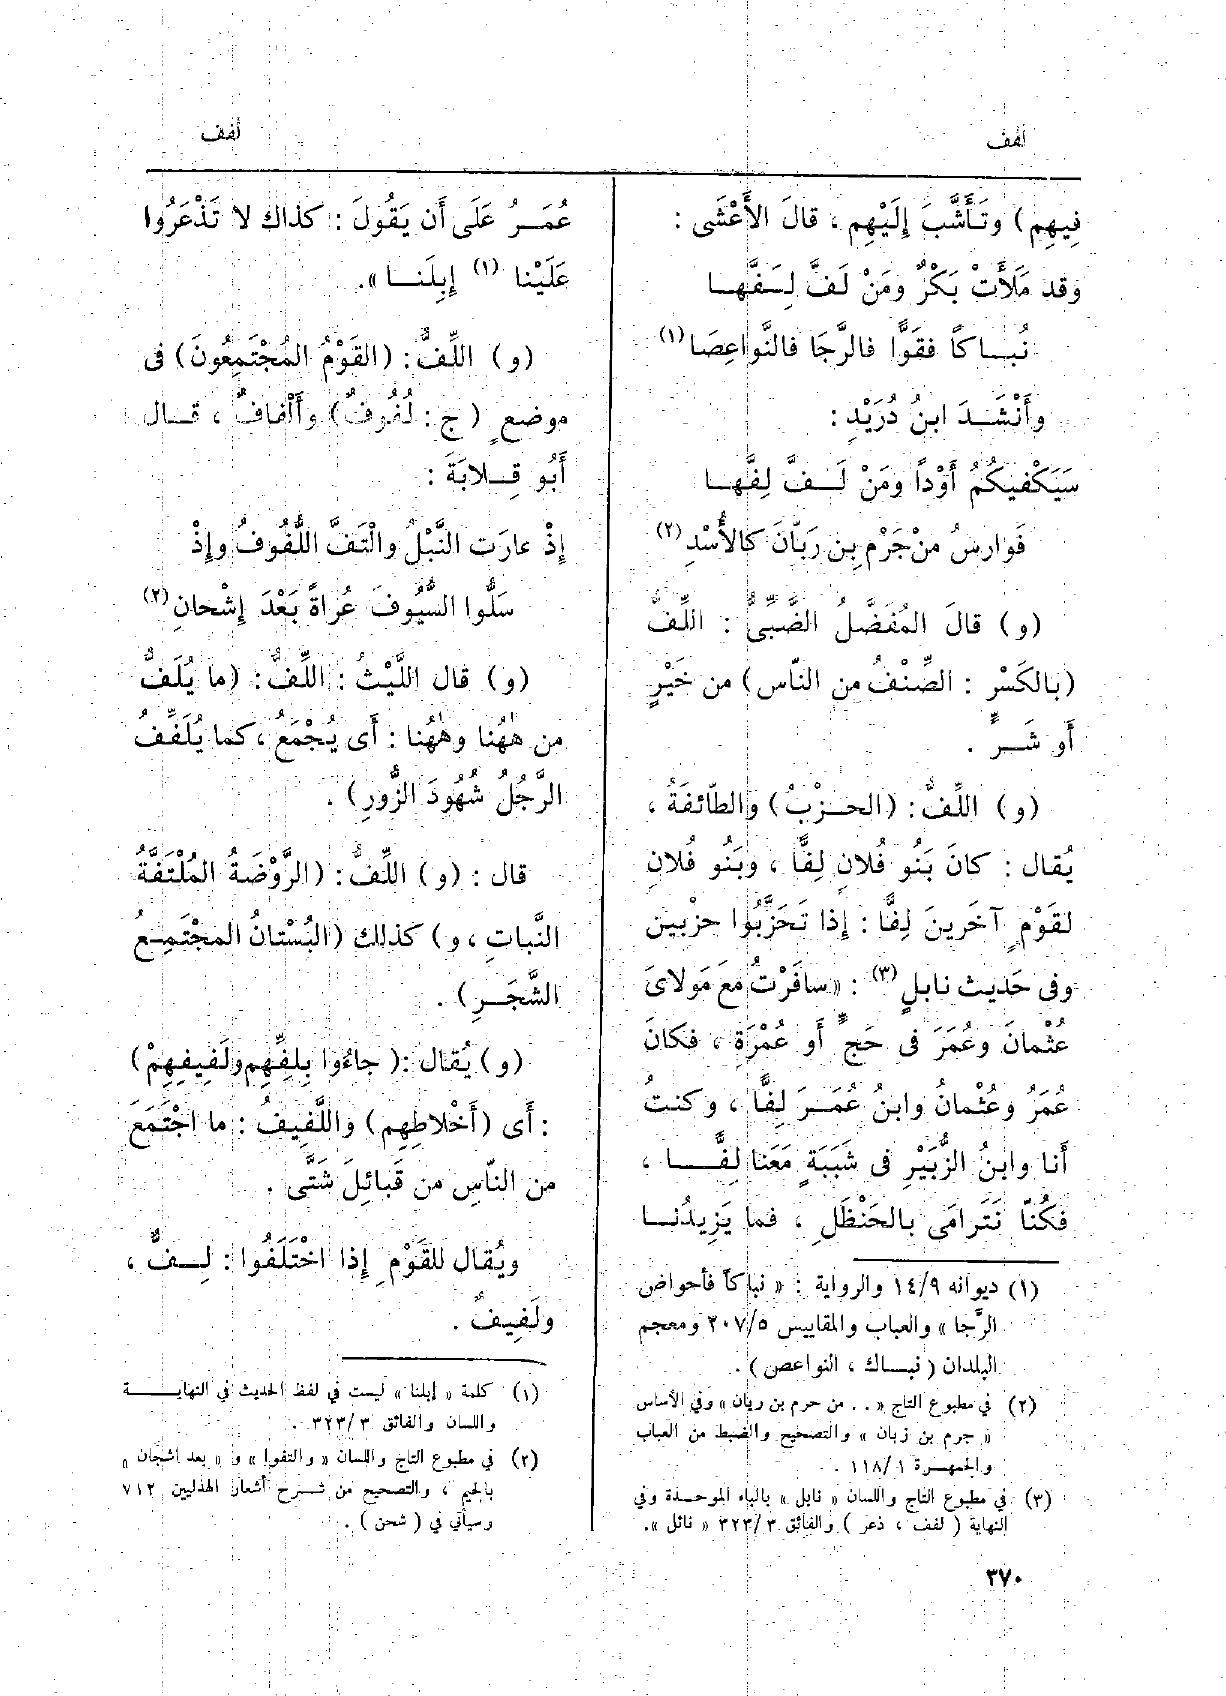 لفف
لفف
فِيهِم) وتَأَشَّبَ إِلَيْهِم ، قالَ الأَعْشَى :
وقد مَلَأَتْ بَكْرٌ ومَنْ لَفَّ لِفَّهـا
نُبـاكاً فقَوًّا فالرَّجَا فالنَّواعِصَا (١)
وأَنْشَـدَ ابنُ دُرَيْدٍ :
سَيَكْفِيكُمُ أَوْداً ومَنْ لَـفَّ لِفَّهـا
فَوارِسُ من جَرْمِ بنِ رَبّانَ كالأُسْدِ (٢)
(و) قالَ المُفَضَّلُ الضَّبِّىُّ : اللِّفُّ
(بالكَسْرِ : الصِّنْفُ من النّاس) من خَيْرٍ
أَو شَـرٍّ .
(و) اللِّفُّ : (الحِـزْبُ) والطّائفَةُ ،
يُقال : كانَ بَنُو فُلانٍ لِفًّا ، وبَنُو فُلانٍ
لقَوْمٍ آخَرِينَ لِفًّا : إذا تَحَزَّبُوا حزْبين
وفى حَديث نابلٍ (٣) : «سافَرْتُ مَعَ مَولاىَ
عُثْمانَ وعُمَرَ فى حَجٍّ أَو عُمْرَةٍ ، فكانَ
عُمَرُ وعُثْمانُ وابنُ عُمَـرَ لِفًّا ، وكنتُ
أَنا وابنُ الزُّبَيْرِ فى شَبَبَةٍ مَعَنا لِفًّـا ،
فكُنّا نَتَرامَى بالحَنْظَلِ ، فما يَزِيدُنـا
(١) ديوانه ١٤/٩ والرواية : « نباكاً فأحواض
الرَّجا » والعباب والمقاييس ٢٠٧/٥ ومعجم
البلدان ( نبـاك ، النواعص ) .
(٢) في مطبوع التاج « . . من حرم بن ريان » وفي الأساس
« جرم بن زبان » والتصحيح والضبط من العباب
والجمهـرة ١١٨/١ .
(٣) في مطبوع التاج واللسان « نابل » بالباء الموحـدة وفي
النهاية ( لفف ، ذعر ) والفائق ٣٢٣/٣ « نائل ».
عُمَـرُ عَلَى أَن يَقُولَ : كذاك لا تَذْعَرُوا
عَلَيْنا (١) إِبِلَنـا ».
(و) اللِّفُّ : (القَوْمُ المُجْتَمِعُونَ) فى
موضعٍ (ج : لُفُوفٌ) وأَلْفافٌ ، قـال
أَبُو قِـلابَةَ :
إِذْ عارَت النَّبْلُ والْتَفَّ اللُّفُوفُ وإِذْ
سَلُّوا السُّيُوفَ عُراةً بَعْدَ إِشْحانِ (٢)
(و) قال اللَّيْثُ : اللِّفُّ : (ما يُلَفُّ
من هٰهُنا وهٰهُنا : أَى يُجْمَعُ ، كما يُلَفِّفُ
الرَّجُلُ شُهُودَ الزُّورِ) .
قال : (و) اللِّفُّ : (الرَّوْضَةُ المُلْتَفَّةُ
النَّباتِ ، و) كذلك (البُسْتانُ المجْتَمِـعُ
الشَّجَـرِ) .
(و) يُقال : (جاءُوا بِلِفِّهِم ولَفِيفِهِمْ)
: أَى (أَخْلاطِهِم) واللَّفِيفُ : ما اجْتَمَعَ
من النّاسِ من قَبائِلَ شَتَّى .
ويُقال للقَوْمِ إِذا اخْتَلَفُوا : لِـفٌّ ،
ولَفِيفٌ .
(١) كلمة « إبلنا » ليست في لفظ الحديث في النهايـة
واللسان والفائق ٣٢٣/٣ .
(٢) في مطبوع التاج واللسان « والتفوا » و « بعد اشجان »
بالجيم ، والتصحيح من شـرح أشعار الهذليين ٧١٢
وسيأتي في ( شحن ) .
٣٧٠